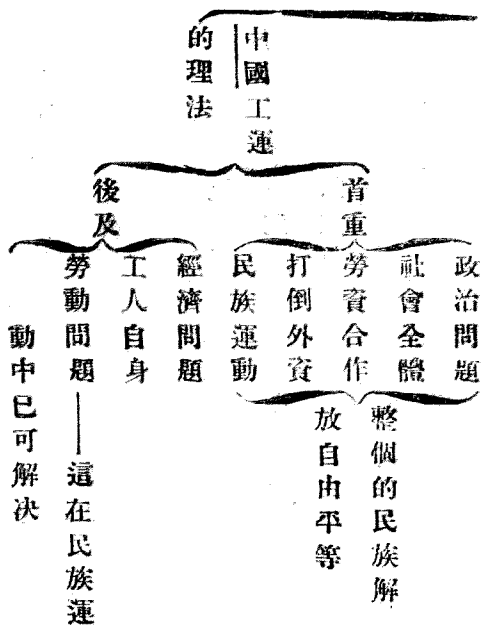 中國工運
的理法
首重
政治問題
社會全體
勞資合作
打倒外資
民族運動
整個的民族解
放自由平等
後及
經濟問題
工人自身
勞動問題——這在民族運
動中已可解決